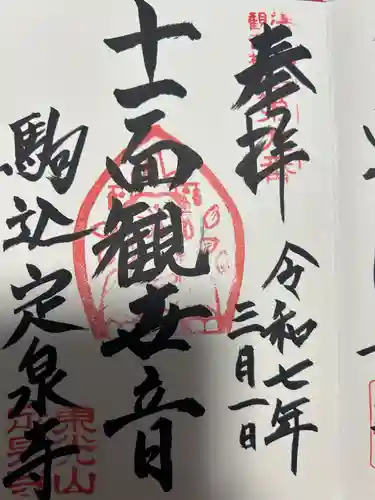 奉拝
令和七年
三月一日
十一面観世音
駒込定泉寺